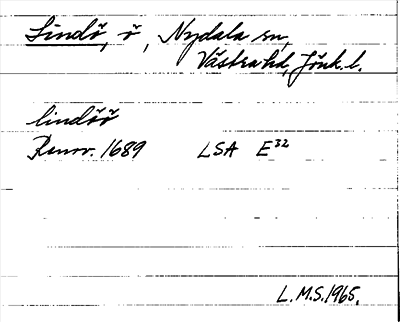 Lindö, ö, Nydala sn,
Västra hd, Jönk. l.
lindöö
Renov. 1689 LSA E32
L.M.S. 1965.